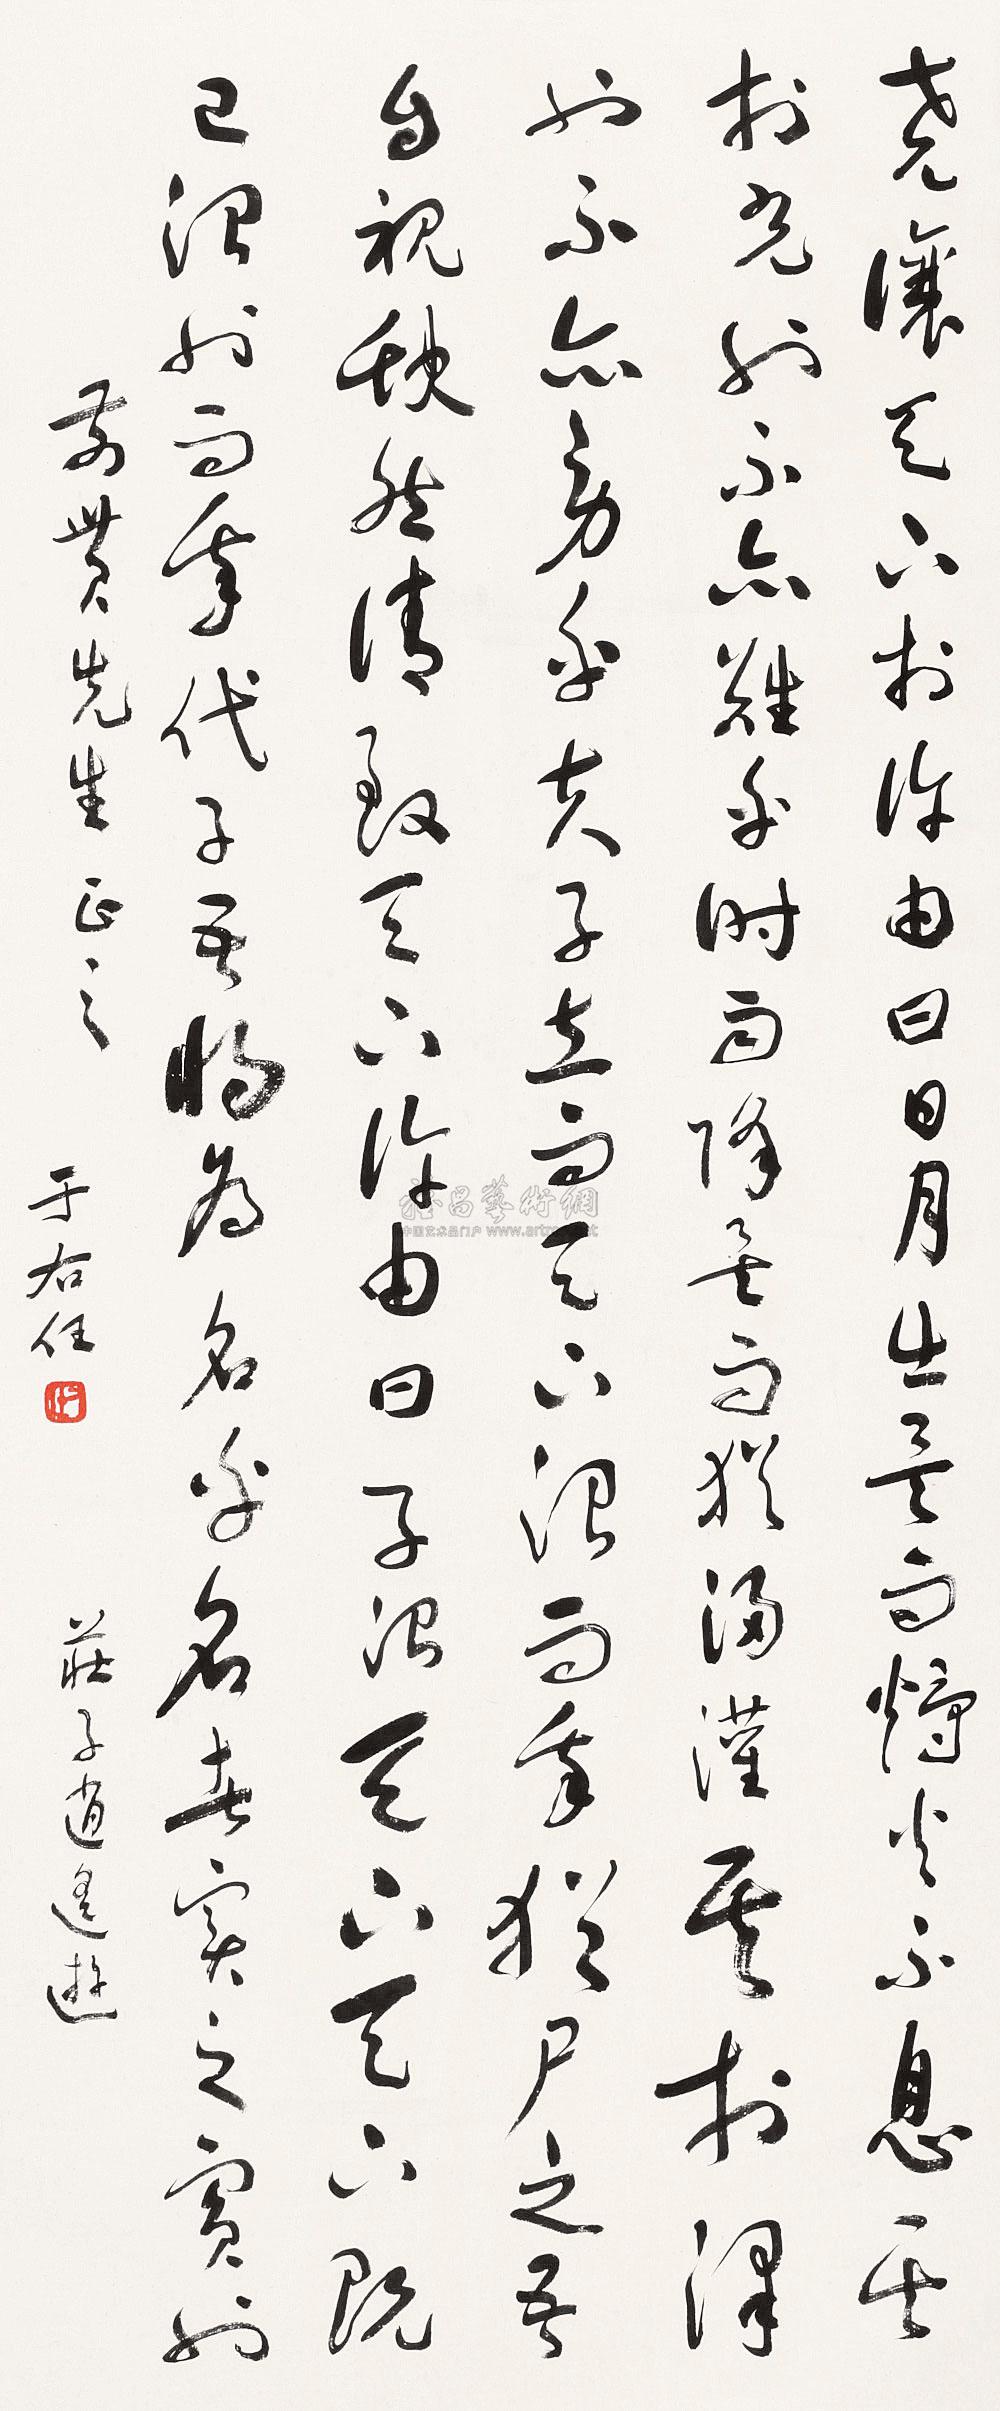 堯讓天下於許由曰日月出矣而爝火不息其
於光也不亦難乎時雨降矣而猶浸灌其於澤
也不亦勞乎夫子立而天下治而我猶尸之吾
自視缺然請致天下許由曰子治天下天下既
已治也而我代子吾將為名乎名者實之賓也
先生正之
莊子逍遙遊
于右任
雅昌藝術網
中国艺术品门户 www.artron.net